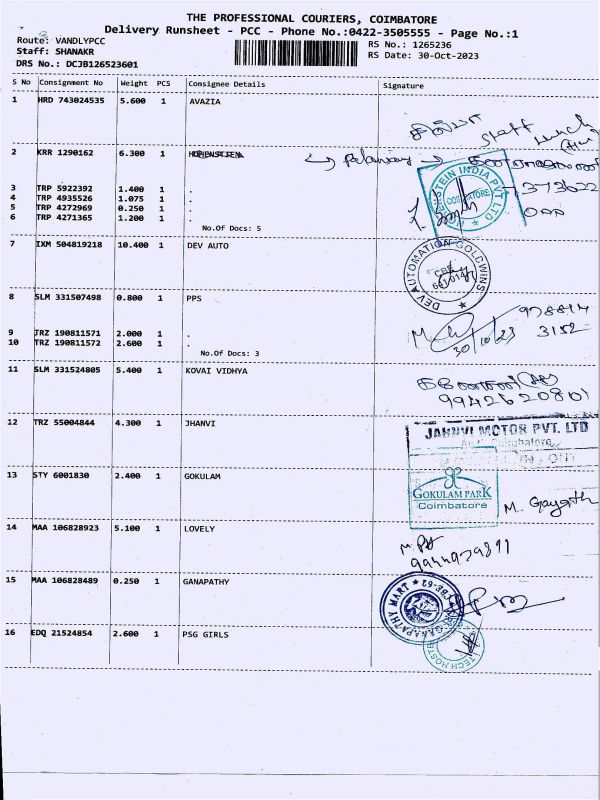 THE PROFESSIONAL COURIERS, COIMBATORE
Delivery Runsheet - PCC - Phone No.:0422-3505555 - Page No.:1
Route: VANDLYPCC
RS No.: 1265236
Staff: SHANAKR
RS Date: 30-Oct-2023
DRS No.: DCJB126523601
S No Consignment No Weight PCS Consignee Details Signature
1 HRD 743024535 5.600 1 AVAZIA
Staff Lunch
2 KRR 1290162 6.300 1
3 TRP 5922392 1.400 1 .
4 TRP 4935526 1.075 1 .
5 TRP 4272969 0.250 1 .
6 TRP 4271365 1.200 1 .
No.Of Docs: 5
INDIA PVT LTD
COIMBATORE
7 IXM 504819218 10.400 1 DEV AUTO
DEV AUTOMATION GOLDWINS
8 SLM 331507498 0.800 1 PPS
978814
3152
30/10/23
9 TRZ 190811571 2.000 1 .
10 TRZ 190811572 2.600 1 .
No.Of Docs: 3
11 SLM 331524805 5.400 1 KOVAI VIDHYA
9942620801
12 TRZ 55004844 4.300 1 JHANVI
JAHNVI MOTOR PVT. LTD
13 STY 6001830 2.400 1 GOKULAM
GOKULAM PARK
Coimbatore
M. Gayath
14 MAA 106828923 5.100 1 LOVELY
15 MAA 106828489 0.250 1 GANAPATHY
GANAPATHY MART
16 EDQ 21524854 2.600 1 PSG GIRLS